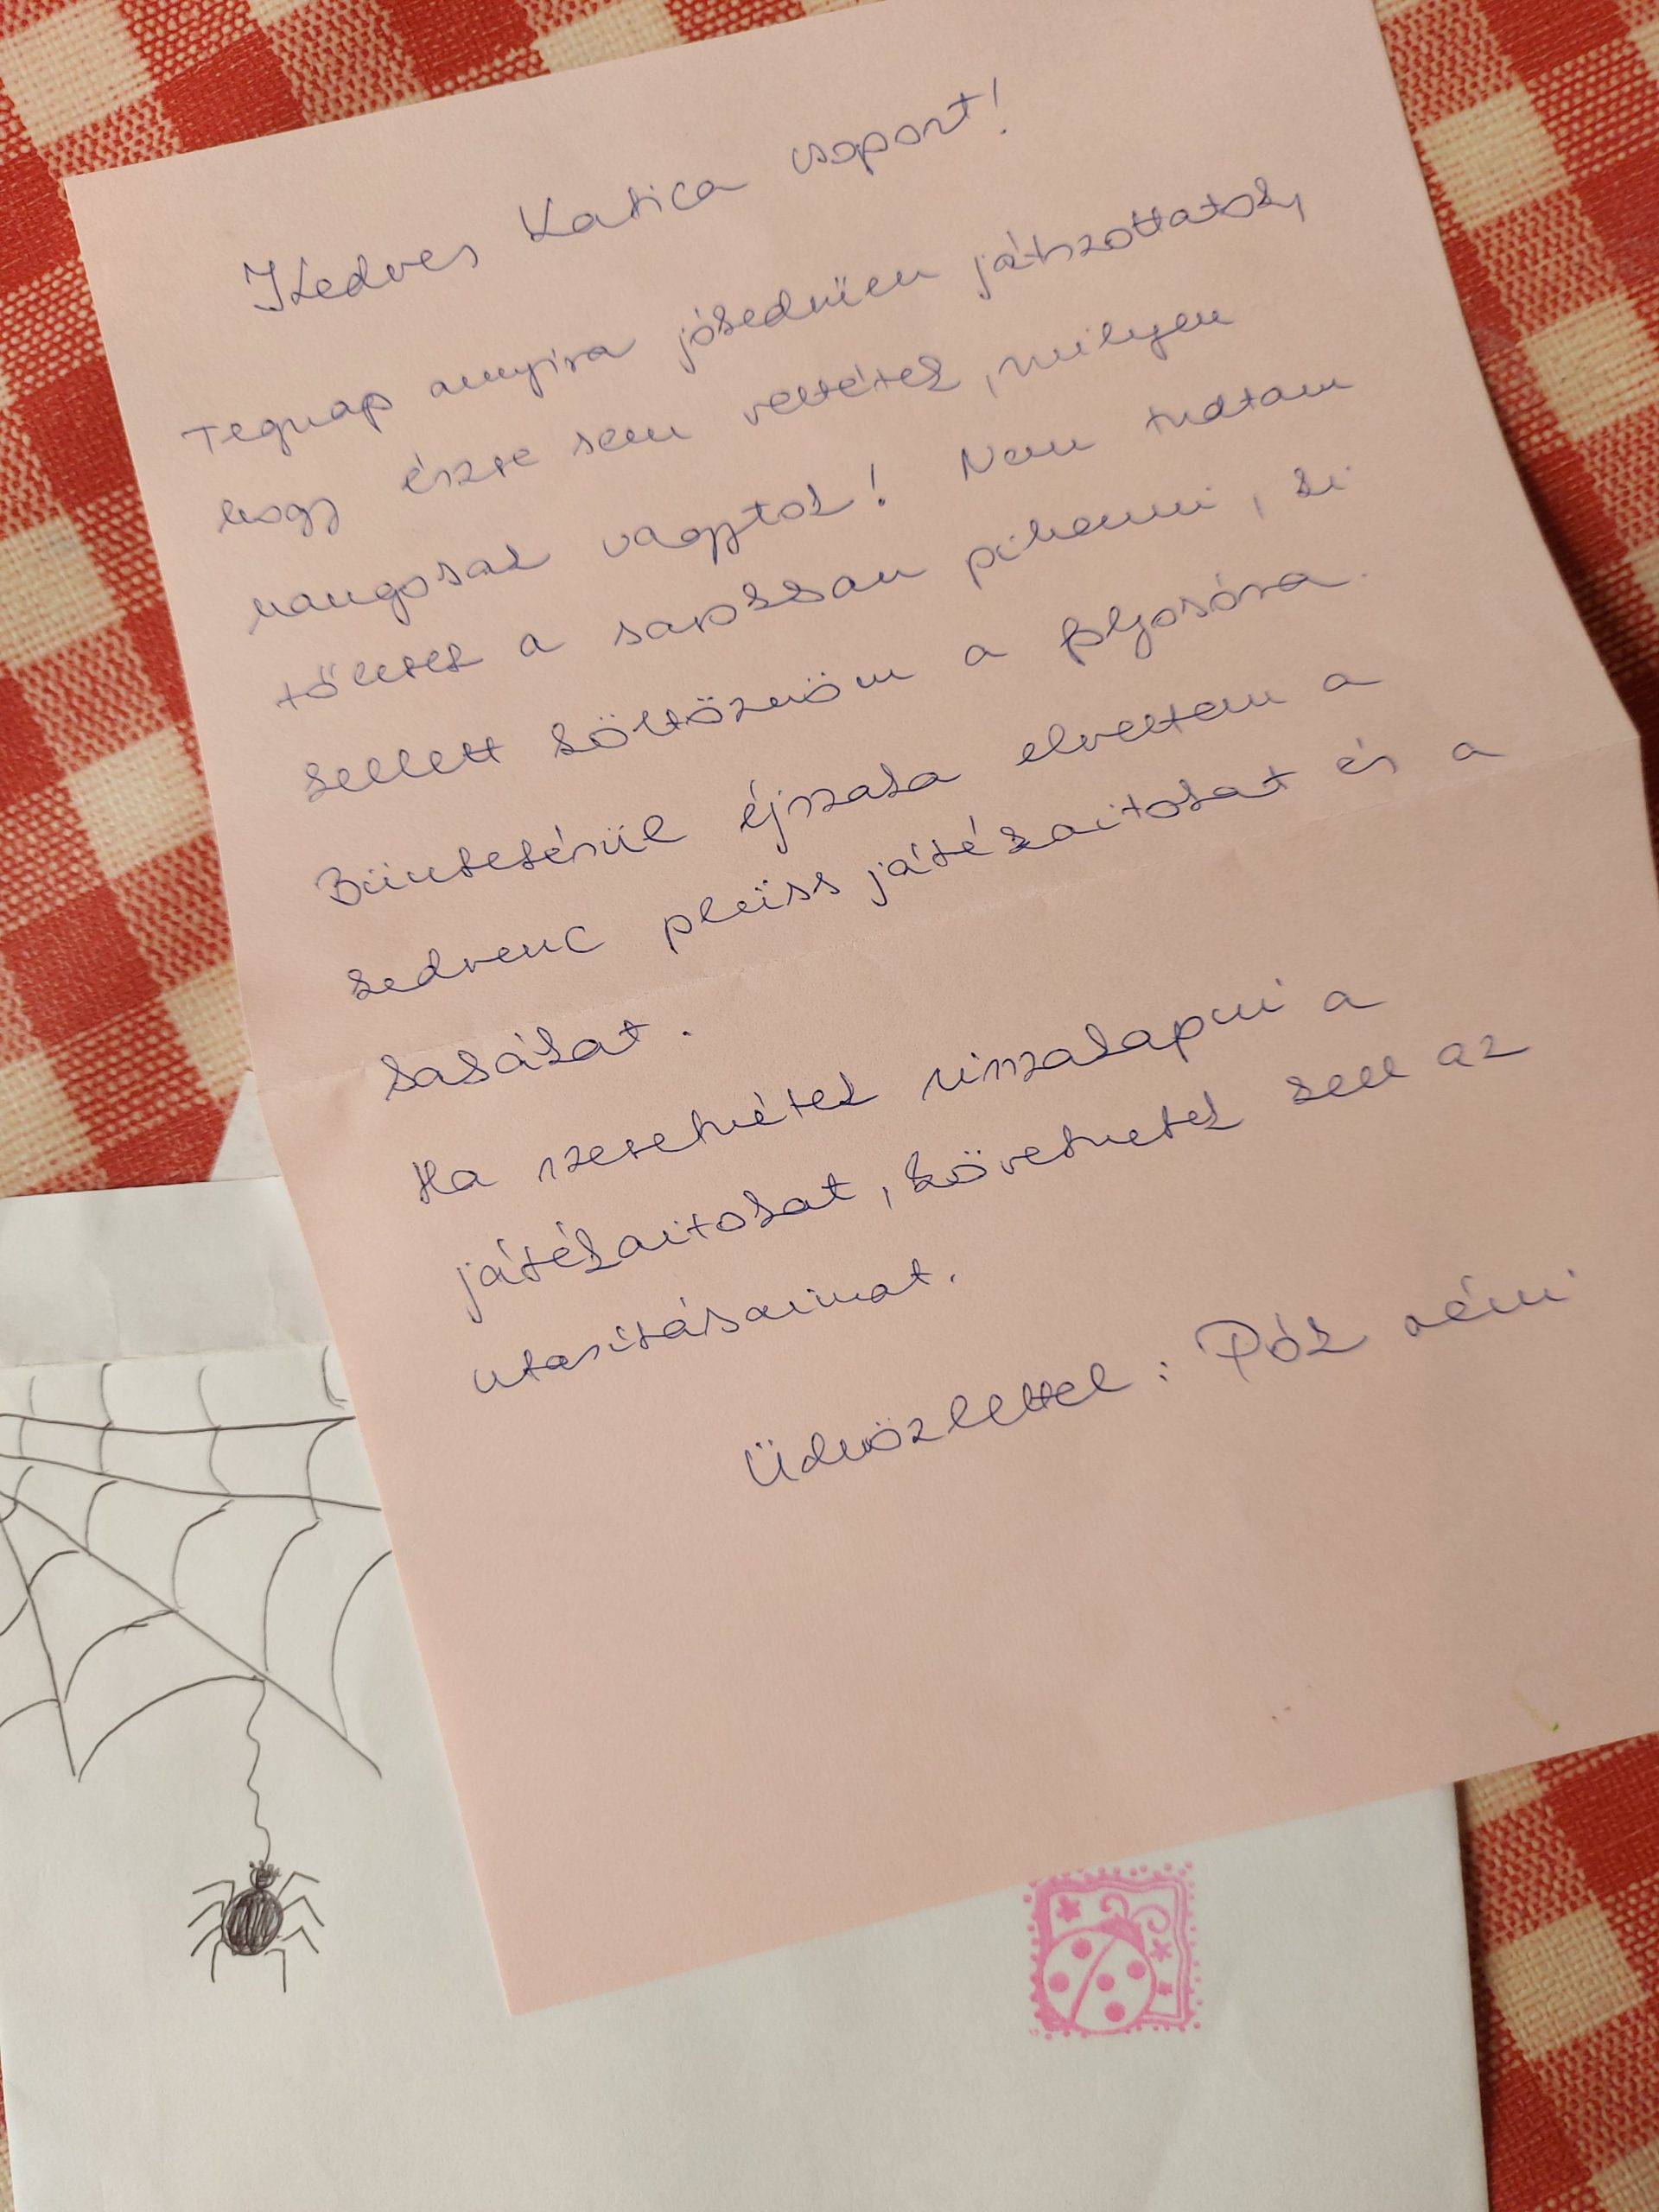 Kedves Katica csoport!
Tegnap annyira jókedvűen játszottatok,
hogy észre sem vettétek, milyen
hangosak vagytok! Nem tudtam
tőletek a sarokban pihenni, ki
kellett költöznöm a folyosóra.
Büntetésül éjszaka elvettem a
kedvenc plüss játékaitokat és a
babákat.
Ha szeretnétek visszakapni a
játékaitokat, követnetek kell az
utasításaimat.
Üdvözlettel: Pók néni